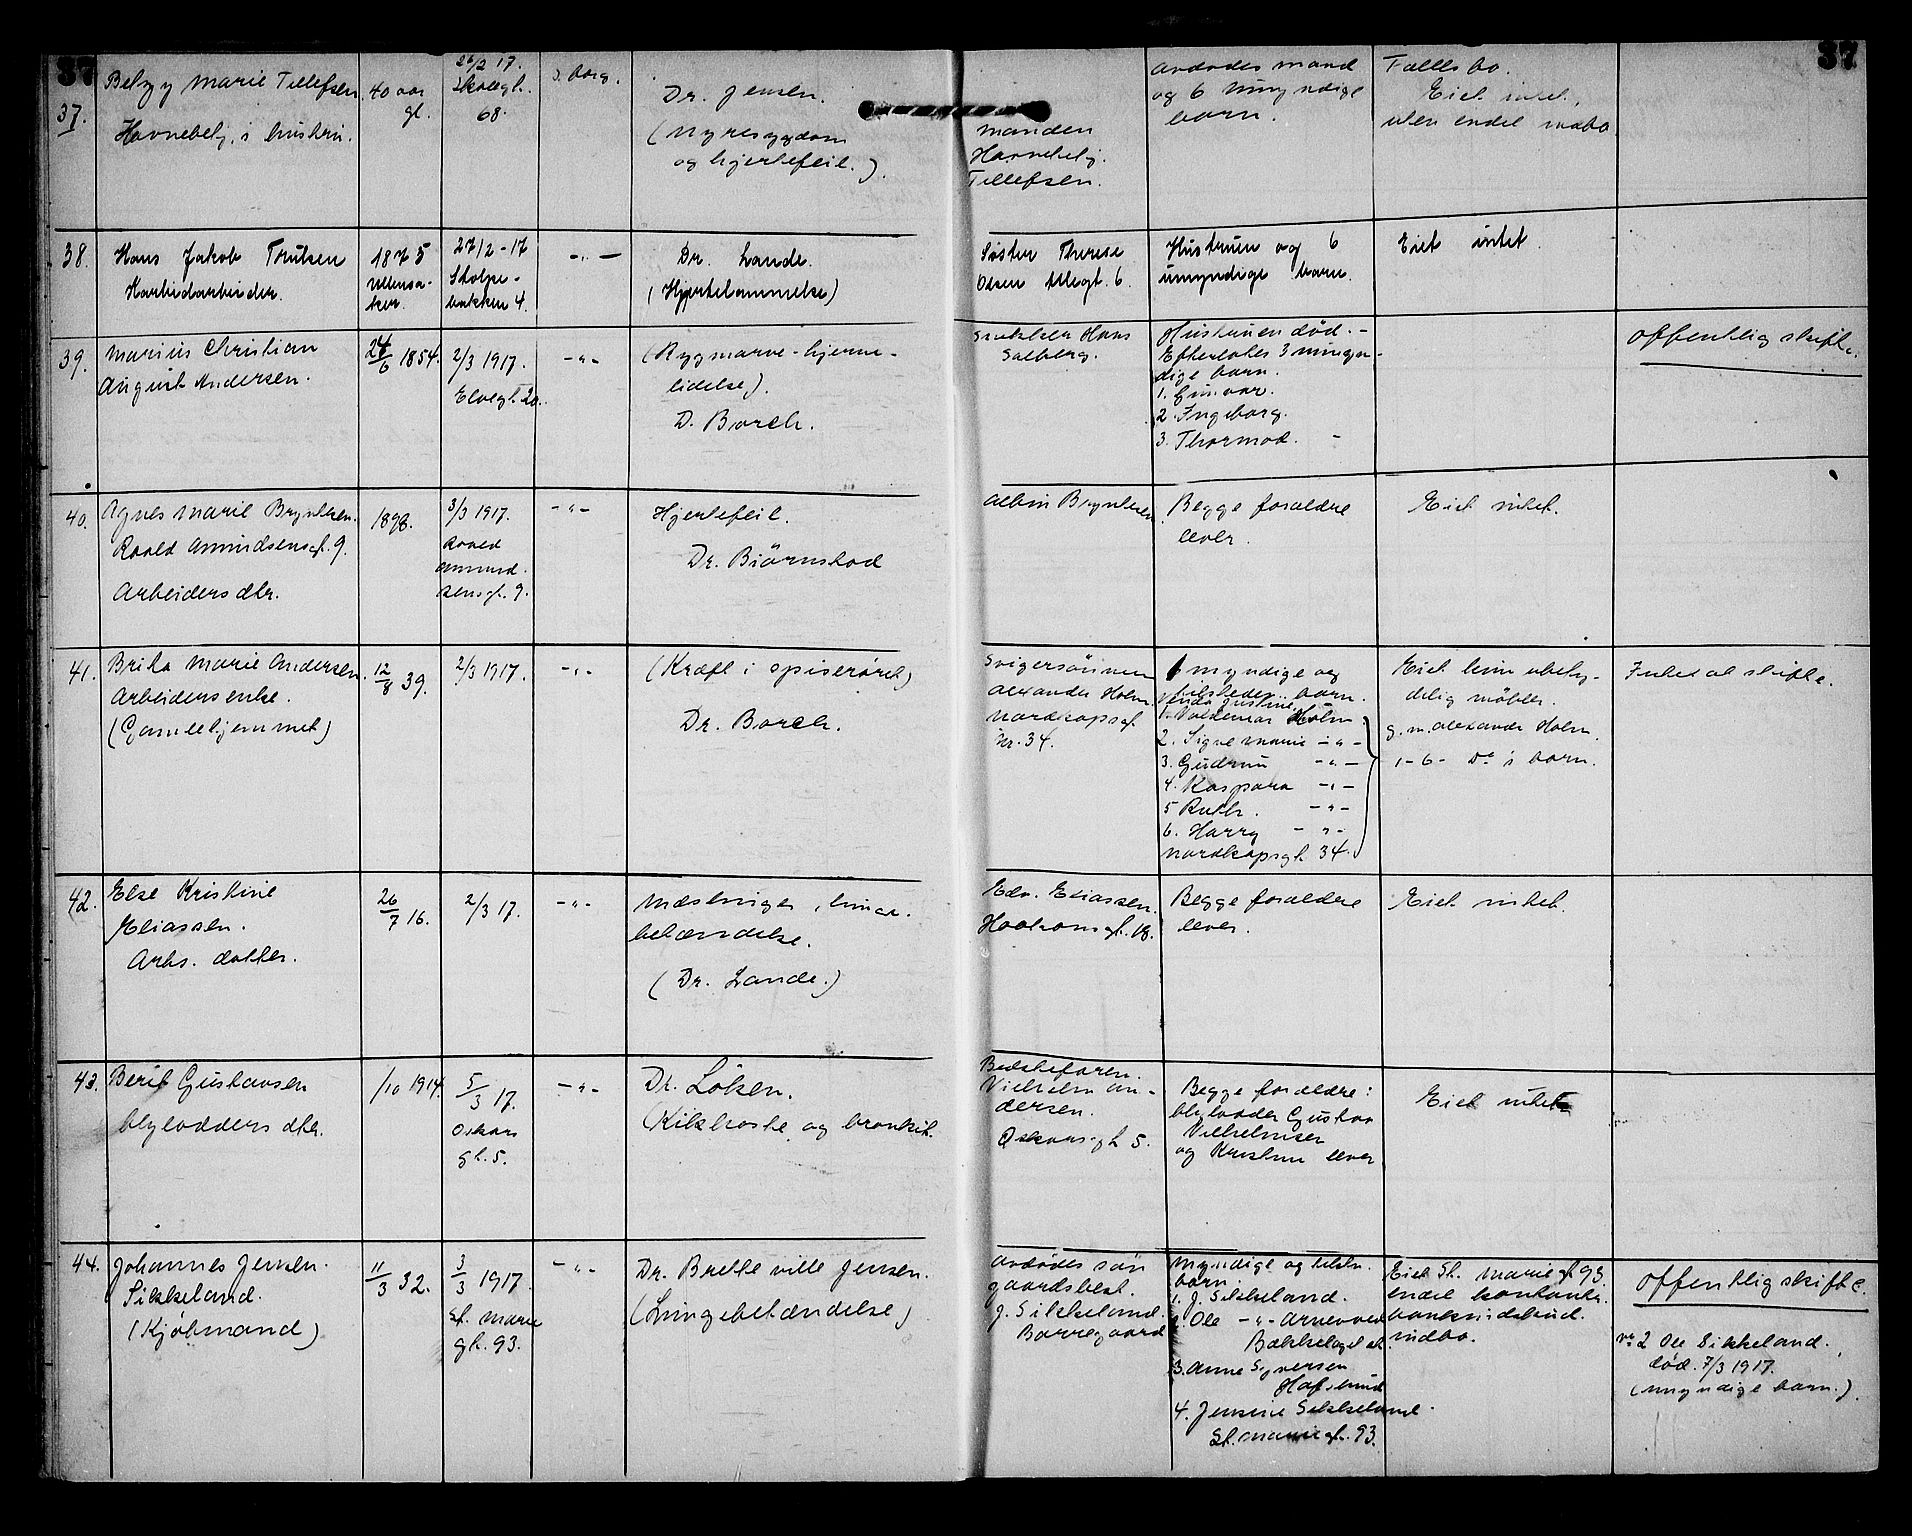 37
37
37.
Betzy Marie Tellefsen
Havnebetj. i hustru.
40 aar
gl.
26/2 17.
Skovgt.
68.
S. borg.
Dr. Jensen.
(Nyresygdom
og hjertefeil.)
manden
Havnebetj.
Tellefsen.
avdødes mand
og 6 umyndige
barn.
Fællesbo.
Eiet intet,
uten endel indbo
38.
Hans Jakob Trulsen
Karbidarbeider.
1875
Ullensa-
ker.
27/2-17
Stolpe-
bakken 4.
-"-
Dr. Lande.
(Hjertelammelse)
Søster Therese
Olsen Ullegt. 6.
Hustruen og 6
umyndige barn.
Eiet intet.
39.
Marius Christian
August Andersen.
24/6 1854.
2/3 1917.
Elvegt. 20.
-"-
(Rygmarve-hjerne-
lidelse).
D. Borch.
Snekker Hans
Salberg.
Hustruen død. -
Efterlates 3 umyn-
dige barn.
1. Gunvor.
2. Ingeborg.
3. Thormod. -
Offentlig skifte.
40.
Agnes Marie Bryntesen.
Roald Amundsensgt. 9.
Arbeiders dtr.
1898.
3/3 1917.
Roald
Amund-
sensgt. 9.
-"-
Hjertefeil.
Dr. Biørnstad
Albin Bryntesen
Begge forældre
lever.
Eiet intet.
41.
Brita Marie Andersen
Arbeidersenke.
(Gamlehjemmet)
12/8 39.
2/3 1917.
-"-
(Kræft i spiserøret)
Dr. Borch.
Svigersønnen
Alexander Holm.
Nordkapsgt.
Nr. 34.
1 myndige og
tilsteder. barn.
1. Valdemar Holm
2. Signe Marie -"-
3. Gudrun -"-
4. Kaspara -"-
5 Ruth. -"-
6. Harry -"-
Nordkapsgt. 34.
Eiet kun ubety-
delig møbler.
g. m. Alexander Holm.
1-6- Do's barn.
Intet at skifte.
42.
Else Kristine
Eliassen.
Arbs. datter.
26/7 16.
2/3 17.
-"-
Mæslinger, lunge-
betændelse.
(Dr. Lande.)
Edv. Eliassen.
Haakonsgt. 18.
Begge forældre
lever.
Eiet intet.
43.
Berit Gustavsen
blylodders dtr.
/10 1914.
5/3 17.
Oskars
gt. 5.
-"-
Dr. Løken.
Kikhoste og bronkit.
Bedstefaren.
Vilhelm An-
dersen.
Oskarsgt 5.
Begge forældre:
blylodder Gustav
Vilhelmsen
og Kristine lever
Eiet intet
44.
Johannes Jensen
Sikkeland.
(Kjøbmand)
11/3 32.
3/3 1917.
St. Marie
gt. 93.
-"-
Dr. Bretteville Jensen.
(Lungebetændelse)
Avdødes søn
gaardsbest.
J. Sikkeland
Borregaard
Myndige og tilstn.
barn.
1. J. Sikkeland.
2. Ole -"- Arnevold
Bækkelaget st.
3. Anne Syversen
Hafslund
4. Jensine Sikkeland.
St. Mariegt. 93.
Eiet St. Mariegt 93.
endel kontanter
bankindskud.
indbo.
Offentlig skifte.
nr 2 Ole Sikkeland.
død. 7/3 1917.
(umyndige barn.)